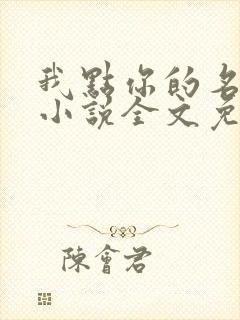 我點你的名
小說全文免
陳會君